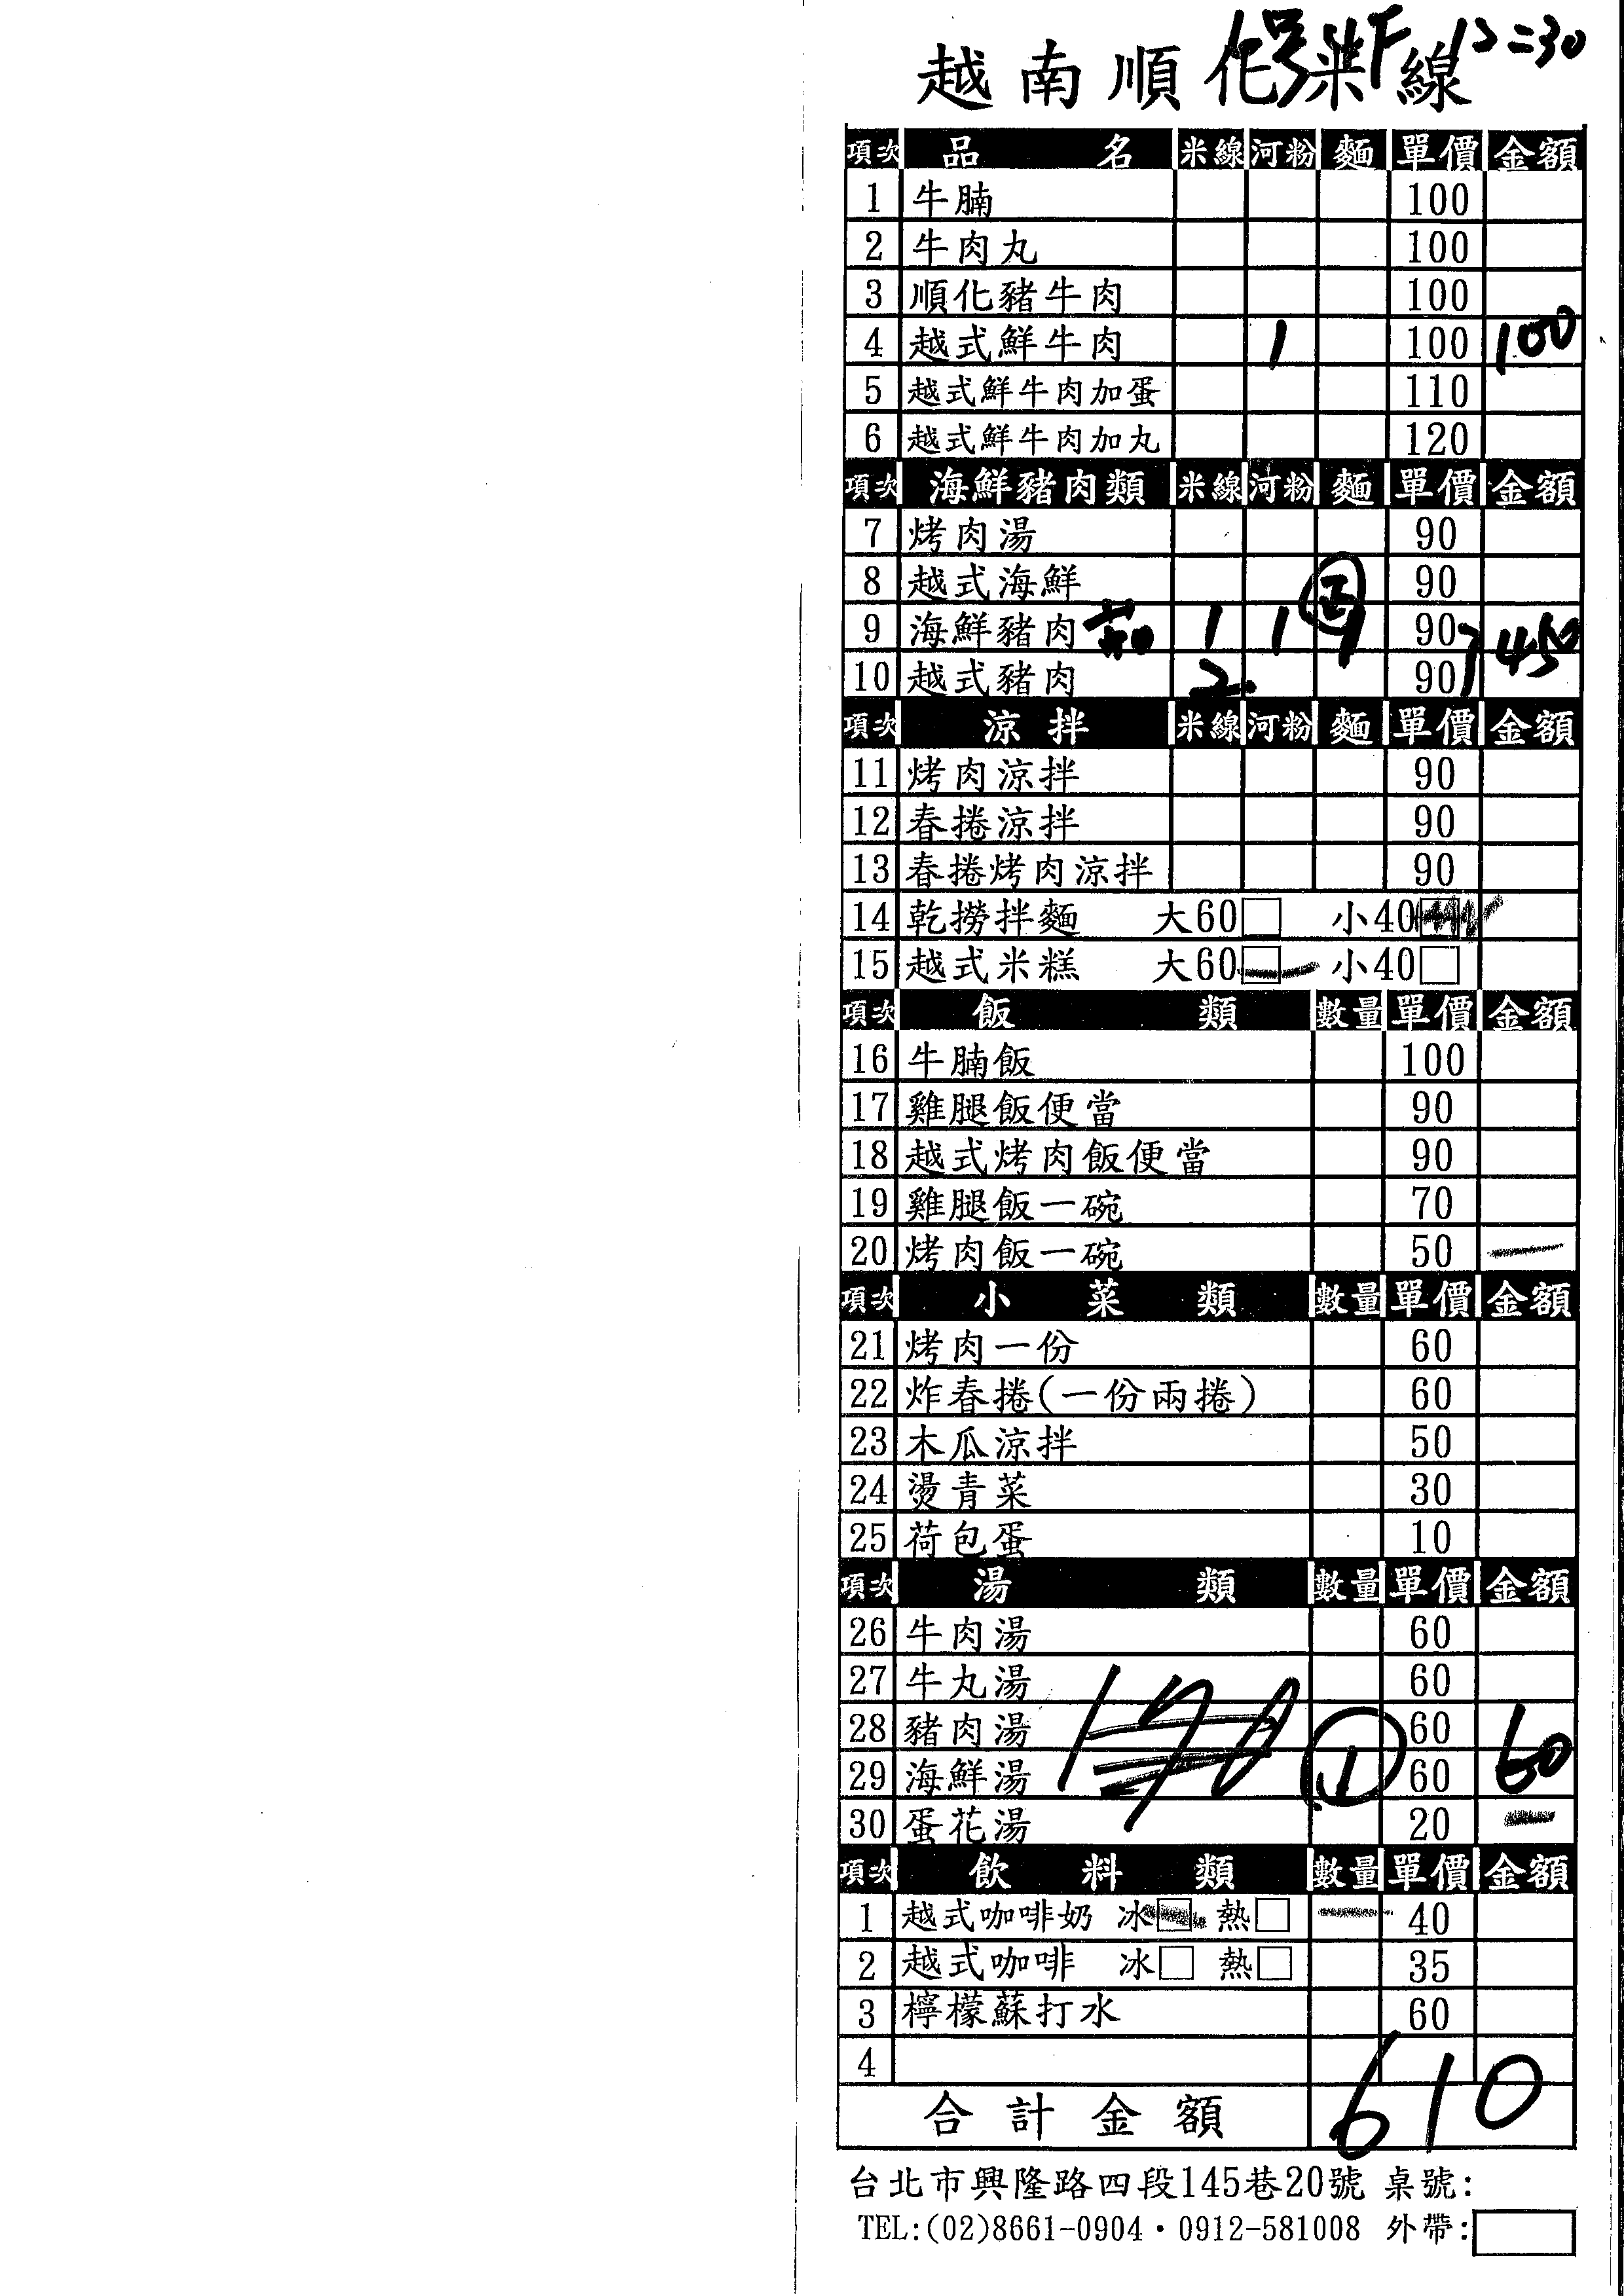 越南順化米線
12=30
項次 品名 米線 河粉 麵 單價 金額
1 牛腩 100
2 牛肉丸 100
3 順化豬牛肉 100
4 越式鮮牛肉 1 100 100
5 越式鮮牛肉加蛋 110
6 越式鮮牛肉加丸 120
項次 海鮮豬肉類 米線 河粉 麵 單價 金額
7 烤肉湯 90
8 越式海鮮 90
9 海鮮豬肉 1 1 1 90 450
10 越式豬肉 2 90
項次 涼拌 米線 河粉 麵 單價 金額
11 烤肉涼拌 90
12 春捲涼拌 90
13 春捲烤肉涼拌 90
14 乾撈拌麵 大60□ 小40□
15 越式米糕 大60□ 小40□
項次 飯類 數量 單價 金額
16 牛腩飯 100
17 雞腿飯便當 90
18 越式烤肉飯便當 90
19 雞腿飯一碗 70
20 烤肉飯一碗 50
項次 小菜類 數量 單價 金額
21 烤肉一份 60
22 炸春捲(一份兩捲) 60
23 木瓜涼拌 50
24 燙青菜 30
25 荷包蛋 10
項次 湯類 數量 單價 金額
26 牛肉湯 60
27 牛丸湯 60
28 豬肉湯 60
29 海鮮湯 1 60 60
30 蛋花湯 20
項次 飲料類 數量 單價 金額
1 越式咖啡奶 冰□ 熱□ 40
2 越式咖啡 冰□ 熱□ 35
3 檸檬蘇打水 60
4
合計金額 610
台北市興隆路四段145巷20號 桌號:
TEL:(02)8661-0904・0912-581008 外帶: